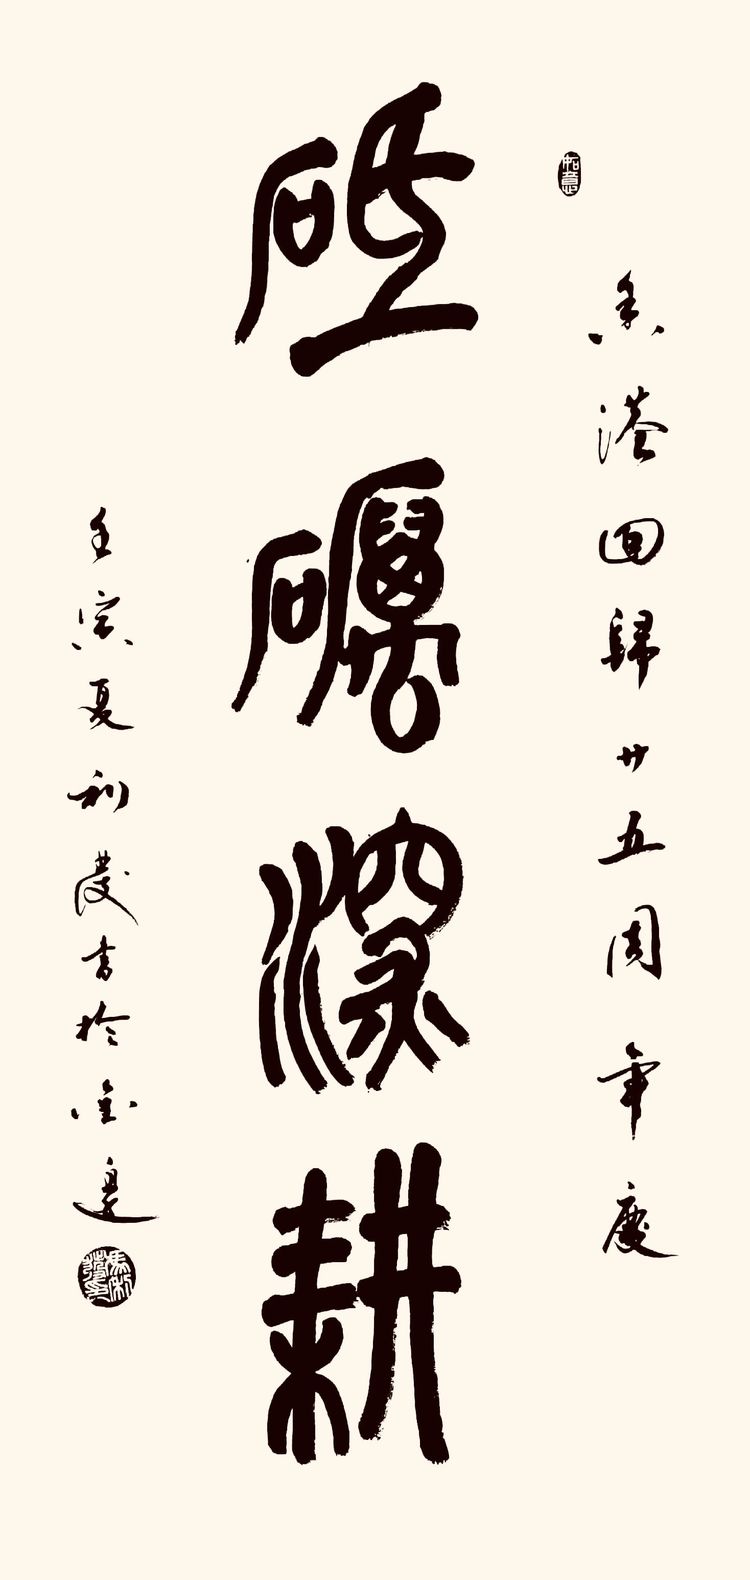 如意
香港回歸廿五周年慶
砥礪深耕
壬寅夏利發書於金邊